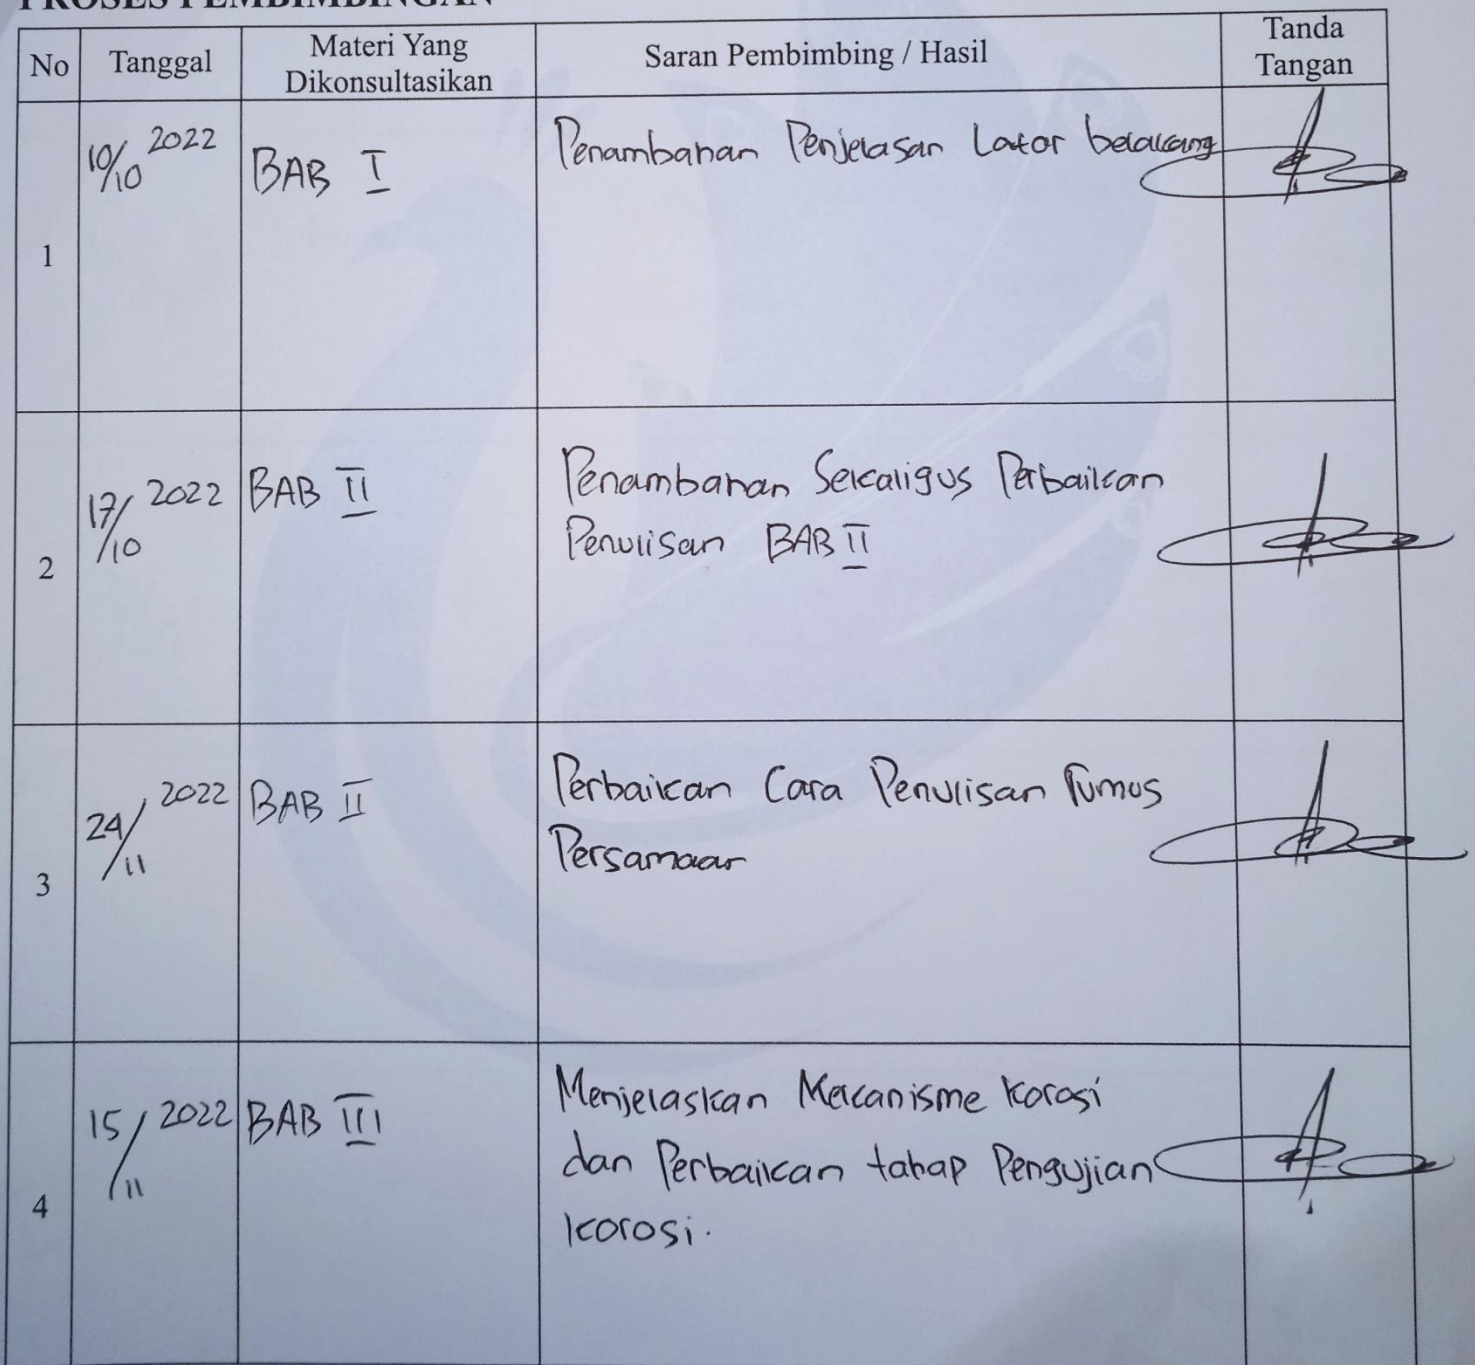 PROSES PEMBIMBINGAN
No Tanggal Materi Yang Dikonsultasikan Saran Pembimbing / Hasil Tanda Tangan
1 10/10 2022 BAB I Penambahan Penjelasan Lator belakang
2 17/10 2022 BAB II Penambahan Sekaligus Perbaikan
Penulisan BAB II
3 24/11 2022 BAB II Perbaikan Cara Penulisan Rumus
Persamaan
4 15/11 2022 BAB III Menjelaskan Mekanisme korosi
dan Perbaikan tahap Pengujian
korosi.